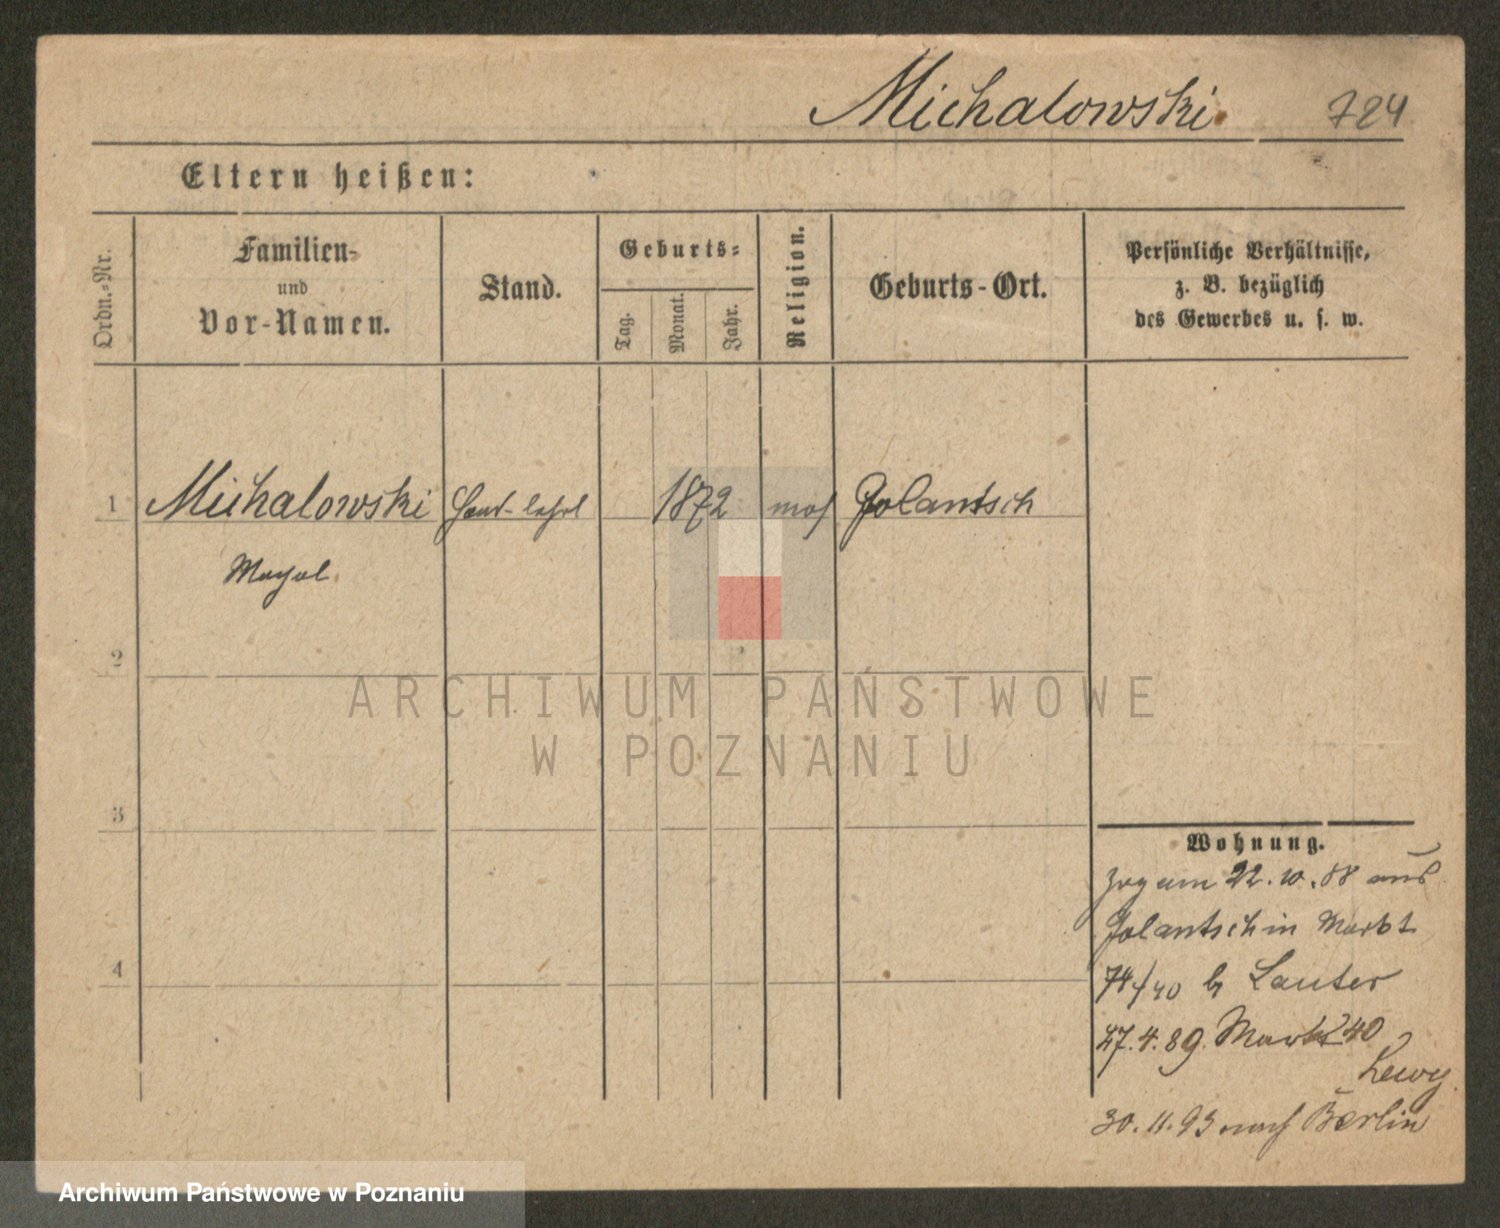 Michalowski. 724
Eltern heißen:
Ordn.-Nr.
Familien-
und
Vor-Namen.
Stand.
Geburts-
Tag.
Monat.
Jahr.
Religion.
Geburts-Ort.
Persönliche Verhältnisse,
z. B. bezüglich
des Gewerbes u. s. w.
1 Michalowski 1872 mos Jolantsch
2
ARCHIWUM PAŃSTWOWE
W POZNANIU
3
4
Wohnung.
zog am 22. 10. 88 aus
Jolantsch in Markt
74/40 b Lauter
27. 4. 89. Markt 40
Lewy
30. 11. 93 nach Berlin
Archiwum Państwowe w Poznaniu